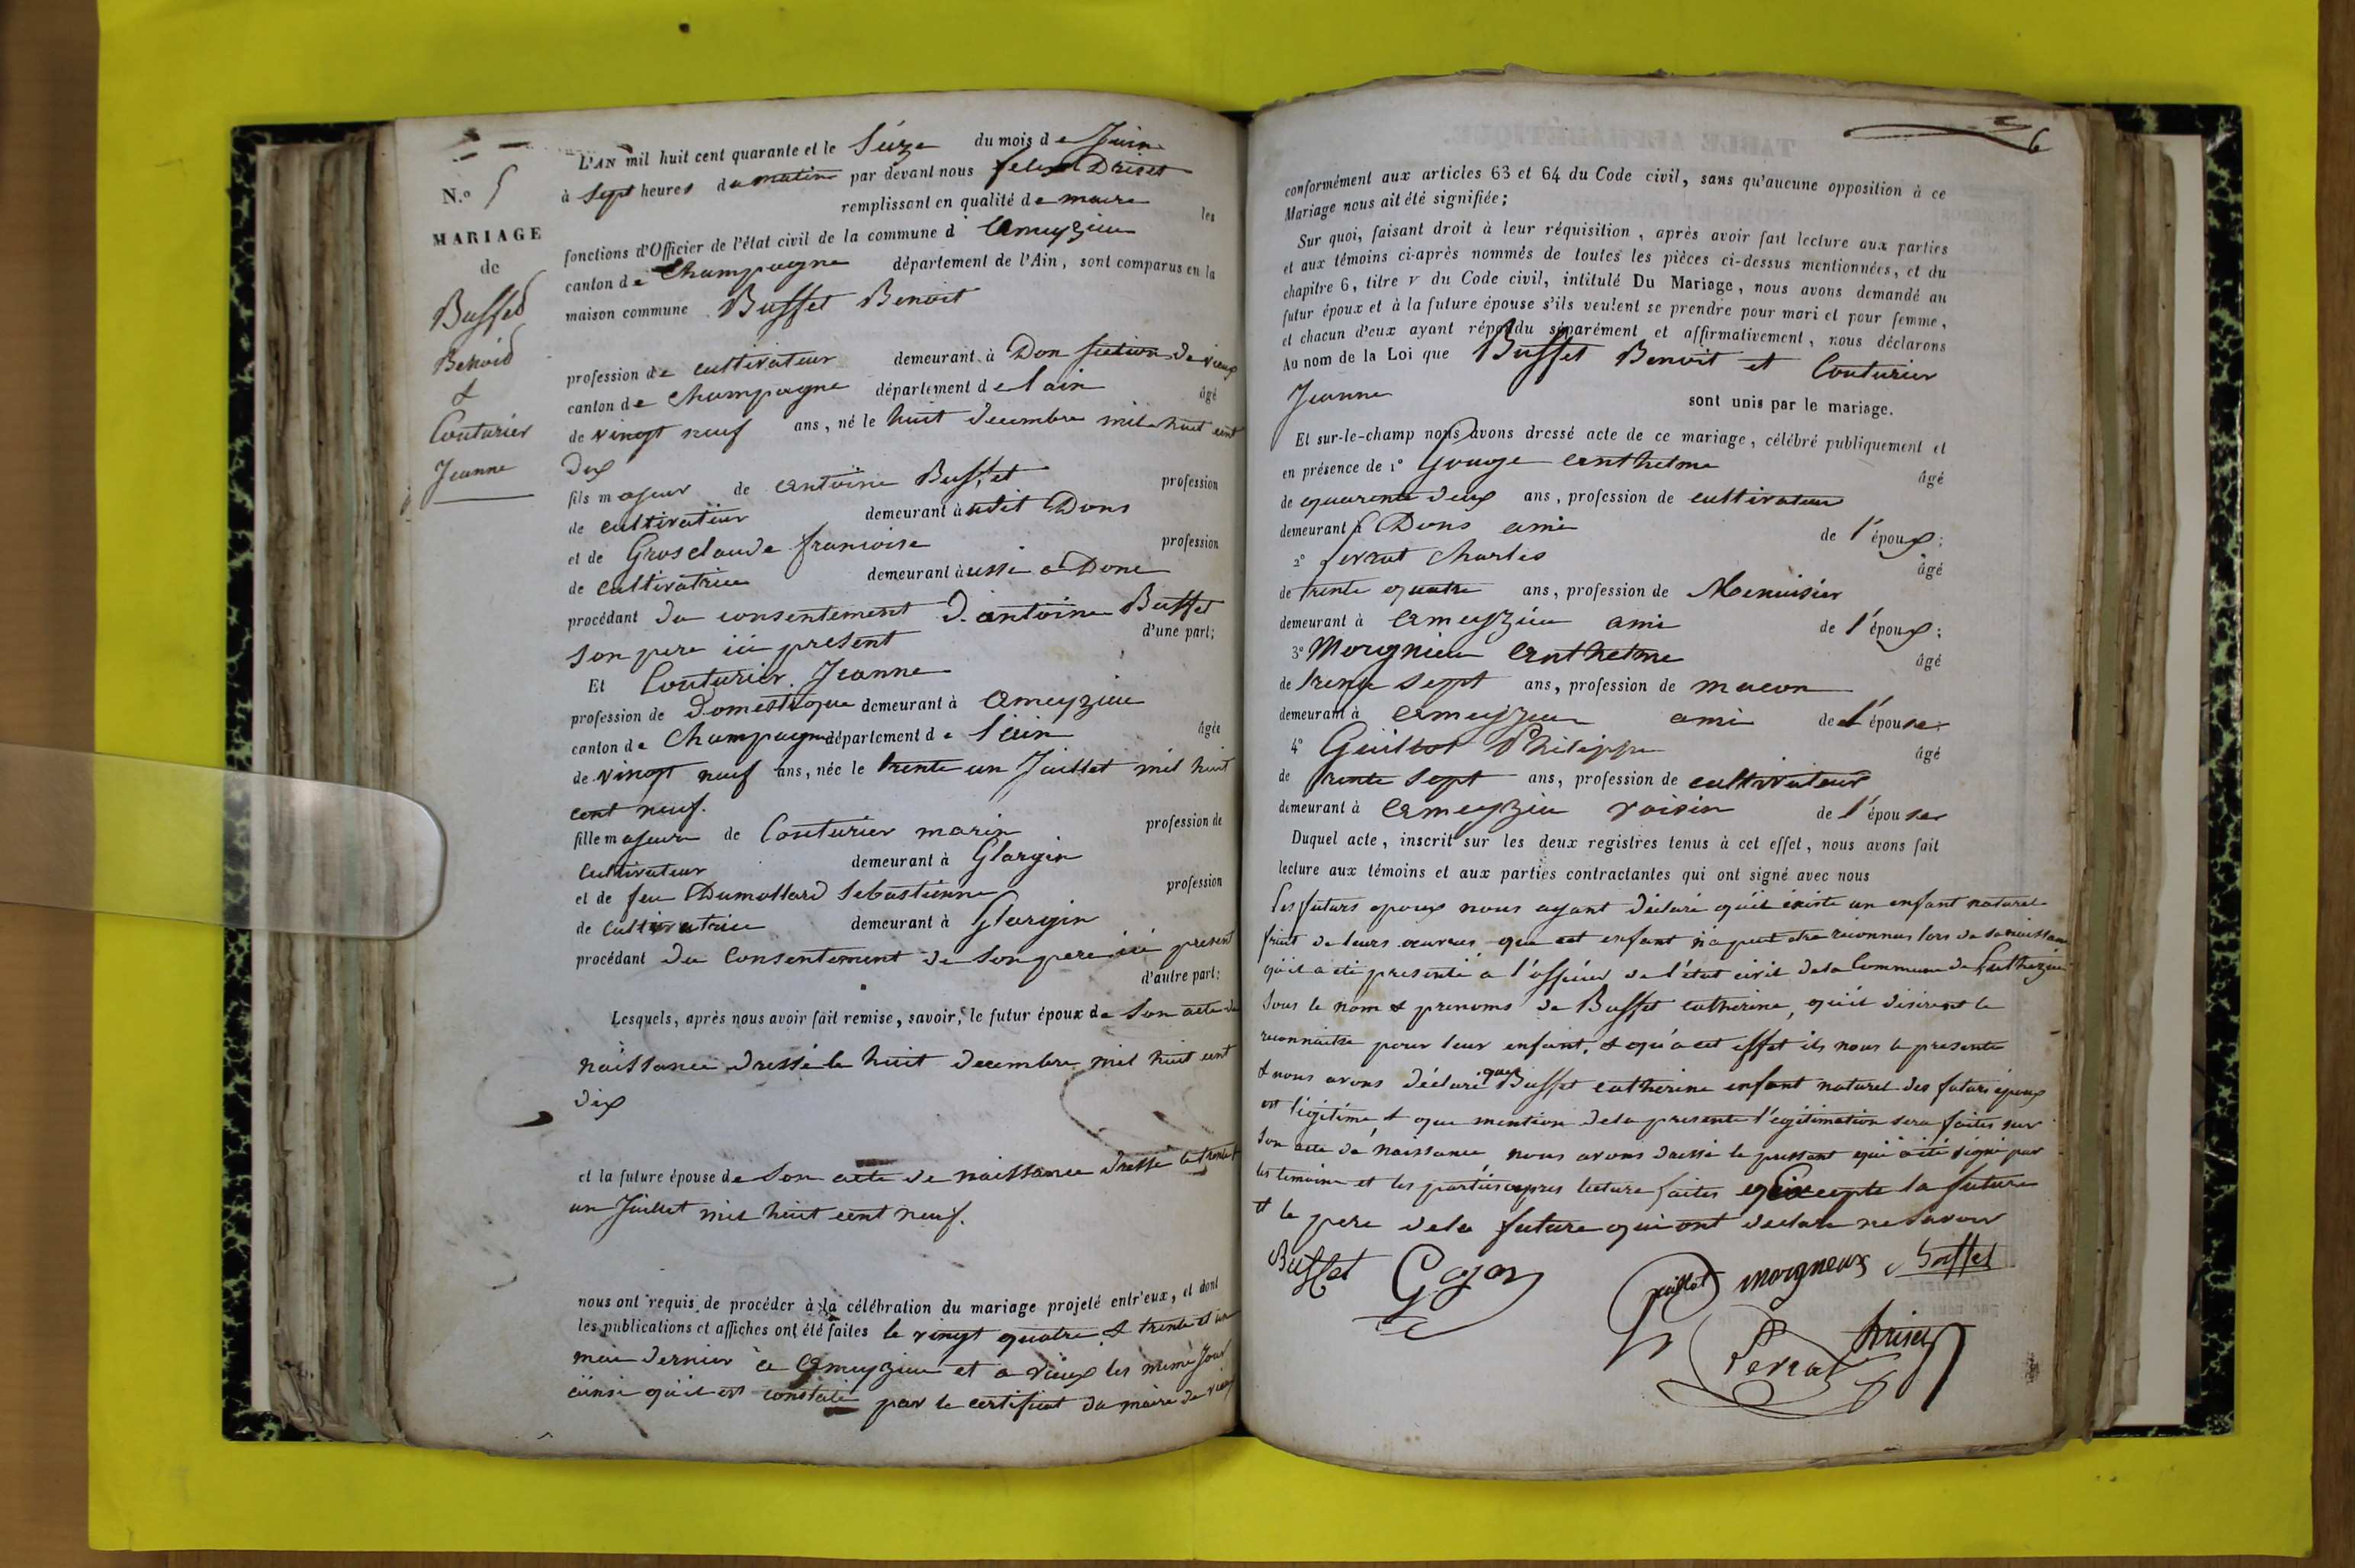 L'AN mil huit cent quarante et le Séize du mois de Juin
à Sept heures du matin par devant nous felix Driset
remplissant en qualité de maire les
fonctions d'Officier de l'état civil de la commune d'Ameyzieu
canton de Champagne département de l'Ain, sont comparus en la
maison commune Buffet Benoit
profession de cultivateur demeurant à Don section de vieux
canton de Champagne département de lain âgé
de vingt neuf ans, né le huit decembre mil huit cent
dix
fils majeur de antoine Buffet profession
de cultivateur demeurant audit Dons
et de Grosclaude francoise profession
de cultivatrice demeurant aussi a Done
procédant du consentement d'antoine Buffet
son pere ici present d'une part;
Et Couturier Jeanne
profession de Domestique demeurant à Ameyzieu
canton de Champagne département de l'ain âgée
de vingt neuf ans, née le trente un Juillet mil huit
cent neuf.
fille majeure de Couturier marin profession de
cultivateur demeurant à Glargin
et de feu Dumollard Sebastienne profession
de cultivatrice demeurant à Glargin
procédant du Consentement de son pere ici present
d'autre part:
Lesquels, après nous avoir fait remise, savoir, le futur époux de Son acte de
naissance dressé le huit decembre mil huit cent
dix
et la future épouse de Son acte de naissance dressé le trente
un Juillet mil huit cent neuf.
nous ont requis de procéder à la célébration du mariage projeté entr'eux, et dont
les publications et affiches ont été faites le vingt quatre & trente et un
mai dernier a Ameyzieu et a vieux les meme Jour
ainsi qu'il est constaté par le certificat du maire de vieux
N.º 5
MARIAGE
de
Buffet
Benoid
&
Couturier
Jeanne
6
conformément aux articles 63 et 64 du Code civil, sans qu'aucune opposition à ce
Mariage nous ait été signifiée;
Sur quoi, faisant droit à leur réquisition, après avoir fait lecture aux parties
et aux témoins ci-après nommés de toutes les pièces ci-dessus mentionnées, et du
chapitre 6, titre V du Code civil, intitulé Du Mariage, nous avons demandé au
futur époux et à la future épouse s'ils veulent se prendre pour mari et pour femme,
et chacun d'eux ayant répondu séparément et affirmativement, nous déclarons
Au nom de la Loi que Buffet Benoit et Couturier
Jeanne sont unis par le mariage.
Et sur-le-champ nous avons dressé acte de ce mariage, célébré publiquement et
en présence de 1º anthelme âgé
de quarente deux ans, profession de cultivateur
demeurant à Dons ami de l'époux;
2º ferrat Charles âgé
de trente quatre ans, profession de Menuisier
demeurant à Ameyzieu ami de l'époux;
3º Morgnieu Anthelme âgé
de trente Sept ans, profession de macon
demeurant à Ameyzieu ami de l'épouse;
4º Guillot Philippe âgé
de trente Sept ans, profession de cultivateur
demeurant à Ameyzieu voisin de l'épouse
Duquel acte, inscrit sur les deux registres tenus à cet effet, nous avons fait
lecture aux témoins et aux parties contractantes qui ont signé avec nous
Les futurs epoux nous ayant déclaré qu'il éxiste un enfant naturel
fruit de leurs oeuvres que cet enfant n'a peut etre reconnus lors de sa naissance
qu'il a été presenté a l'officier de l'état civil de la Commune de
Sous le nom & prenoms de Buffet catherine, qu'il désirent le
reconnaitre pour leur enfant, & qu'a cet effet ils nous le presente
& nous avons déclaré que Buffet catherine enfant naturel des futurs époux
est légitime, & que mention de la presente légitimation sera faites sur
Son acte de naissance nous avons dressé le present qui a été signé par
les temoins et les parties apres lecture faites Excepte la future
& le pere de la future qui ont declare ne savoir
Buffet Gojon Guillot morgneux Buffet
Perrat Driset